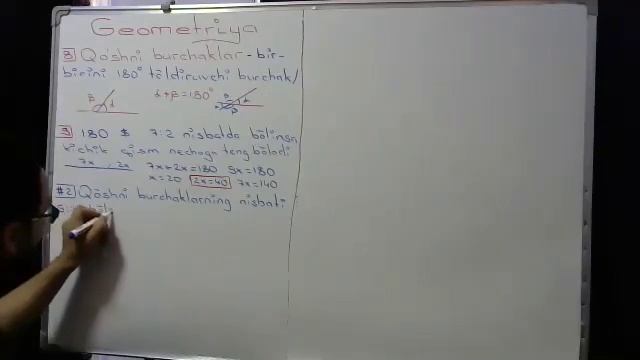 Geometriya
3 Qo'shni burchaklar - bir-
birini 180° tōldiruvchi burchak
β α α+β=180°
3 180 $ 7:2 nisbatda bōlinsa
kichik qism nechaga teng bōladi
7x 2x 7x+2x=180 9x=180
x=20 2x=40 7x=140
#2 Qōshni burchaklarning nisbati